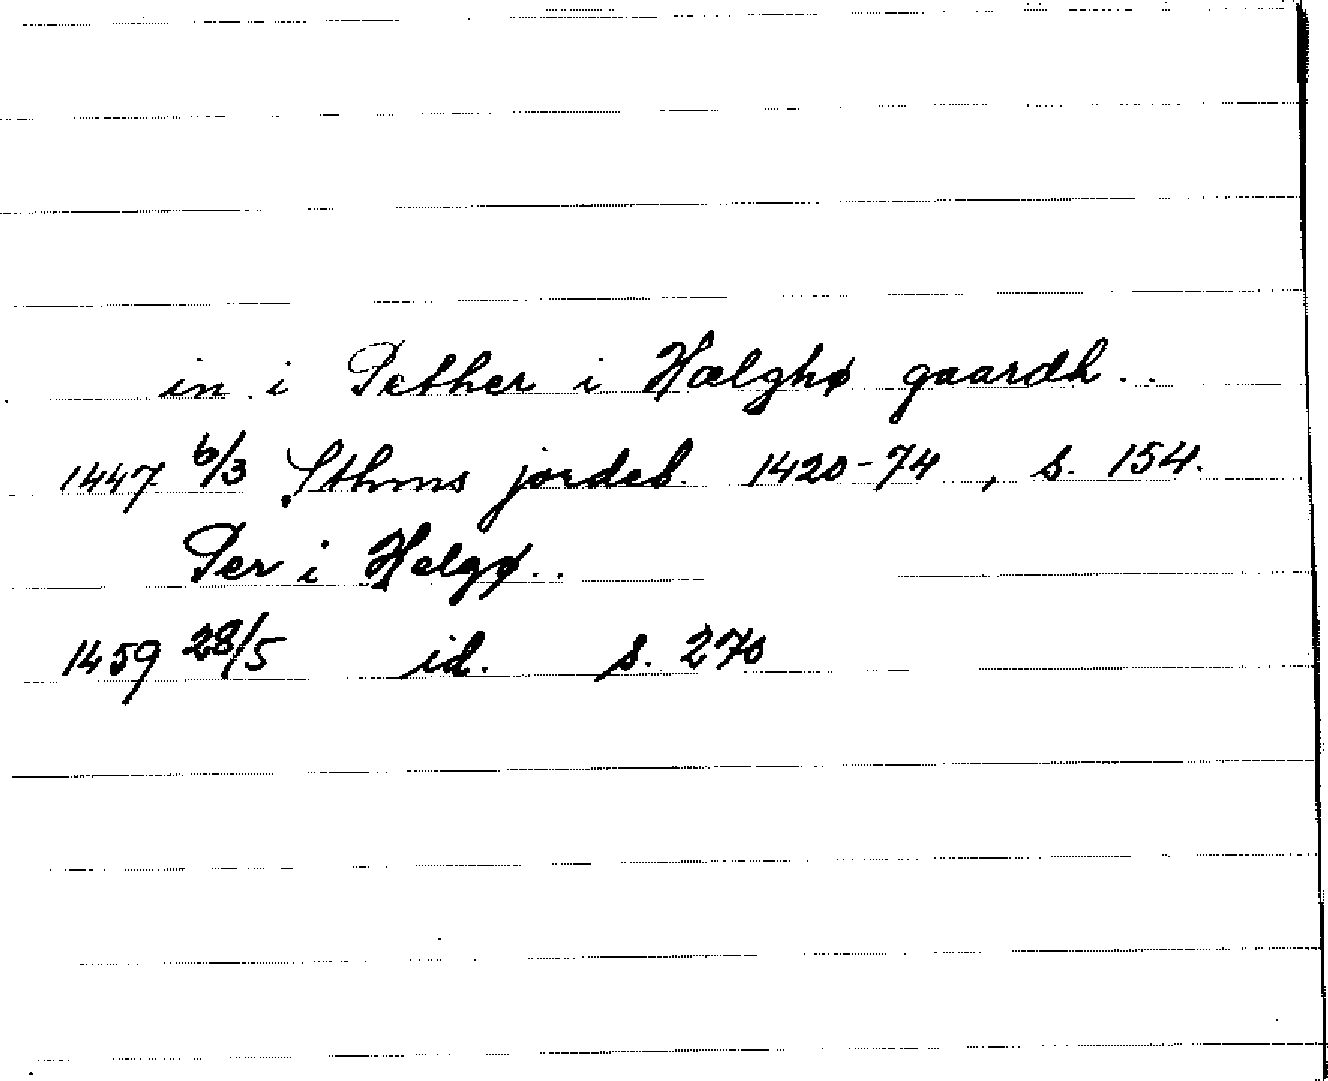 in i Pether i Hælghø gaardh..
1447 6/3 Sthms jordeb. 1420-74, s. 154.
Per i Helgø..
1459 28/5 id. s. 270